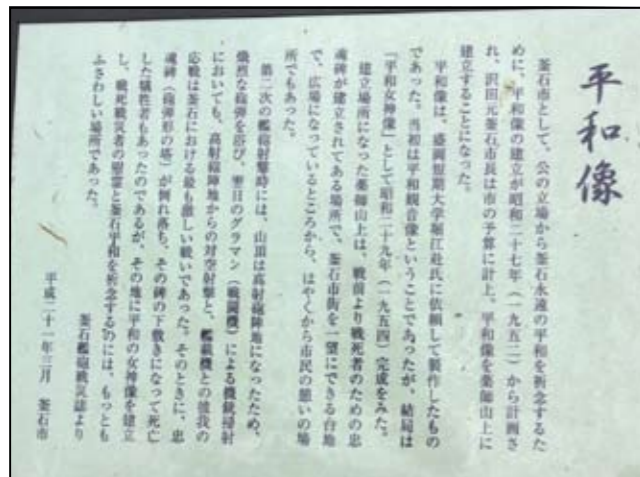 平和像
釜石市として、公の立場から釜石永遠の平和を祈念するた
めに、平和像の建立が昭和二十七年（一九五二）から計画さ
れ、沢田元釜石市長は市の予算に計上。平和像を薬師山上に
建立することになった。
平和像は、盛岡短期大学堀江赳氏に依頼して製作したもの
であった。当初は平和観音像ということであったが、結局は
「平和女神像」として昭和二十九年（一九五四）完成をみた。
建立場所になった薬師山上は、戦前より戦死者のための忠
魂碑が建立されてある場所で、釜石市街を一望にできる台地
で、広場になっているところから、はやくから市民の憩いの場
所でもあった。
第二次の艦砲射撃時には、山頂は高射砲陣地になったため、
熾烈な砲弾を浴び、翌日のグラマン（戦闘機）による機銃掃射
においても、高射砲陣地からの対空射撃と、艦載機との彼我の
応戦は釜石における最も激しい戦いであった。そのときに、忠
魂碑（砲弾形の塔）が倒れ落ち、その碑の下敷きになって死亡
した犠牲者もあったのであるが、その地に平和の女神像を建立
し、戦死戦災者の慰霊と釜石平和を祈念するのには、もっとも
ふさわしい場所であった。
釜石艦砲戦災誌より
平成二十一年三月　釜石市